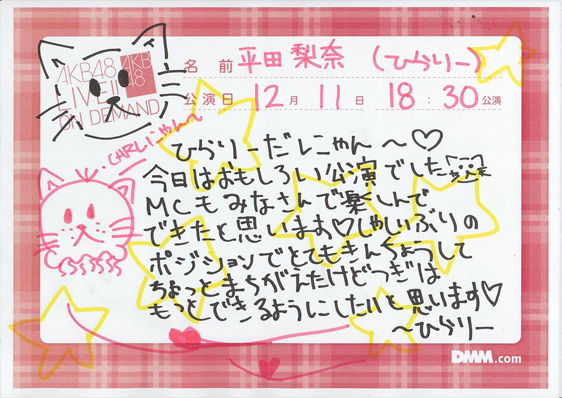 AKB48
LIVE!!
ON DEMAND
AKB
48
名前 平田梨奈 (ひらりー)
公演日 12月11日 18:30公演
ひらりーだにゃん〜♡
今日はおもしろい公演でした
MCもみなさんで楽しんで
できたと思います♡ひさしぶりの
ポジションでとてもきんちょうして
ちょっとまちがえたけどつぎは
もっとできるようにしたいと思います♡
〜ひらりー
DMM.com